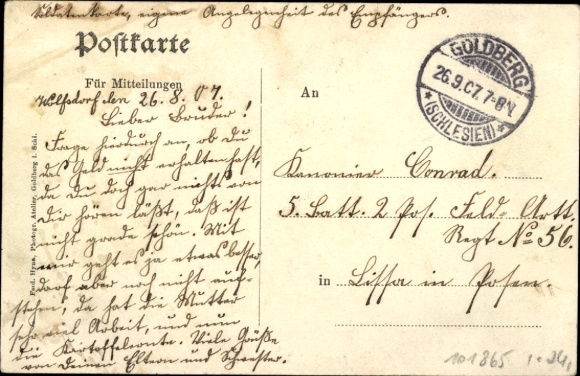 Soldatenkarte, eigene Angelegenheit des Empfängers.
Postkarte
Für Mitteilungen
An
GOLDBERG
26.9.07. 7-8 V.
* (SCHLESIEN) *
Wolfsdorf den 26.8.07.
Lieber Bruder!
Frage hierdurch an, ob du
das Geld nicht erhalten hast,
da du doch gar nichts von
Dir hören läßt, daß ist
nicht grade schön. Mit
mir geht es ja etwas besser,
darf aber noch nicht auf-
stehen, da hat die Mutter
sehr viel Arbeit, und nun
die Kartoffelernte. Viele Grüße
von Deinen Eltern und Schwester.
Kanonier Conrad.
5. Batt. 2 Pos. Feld-Artt.
Regt No 56.
in Lissa in Posen.
Photogr. Atelier, Goldberg i. Schl.
101865